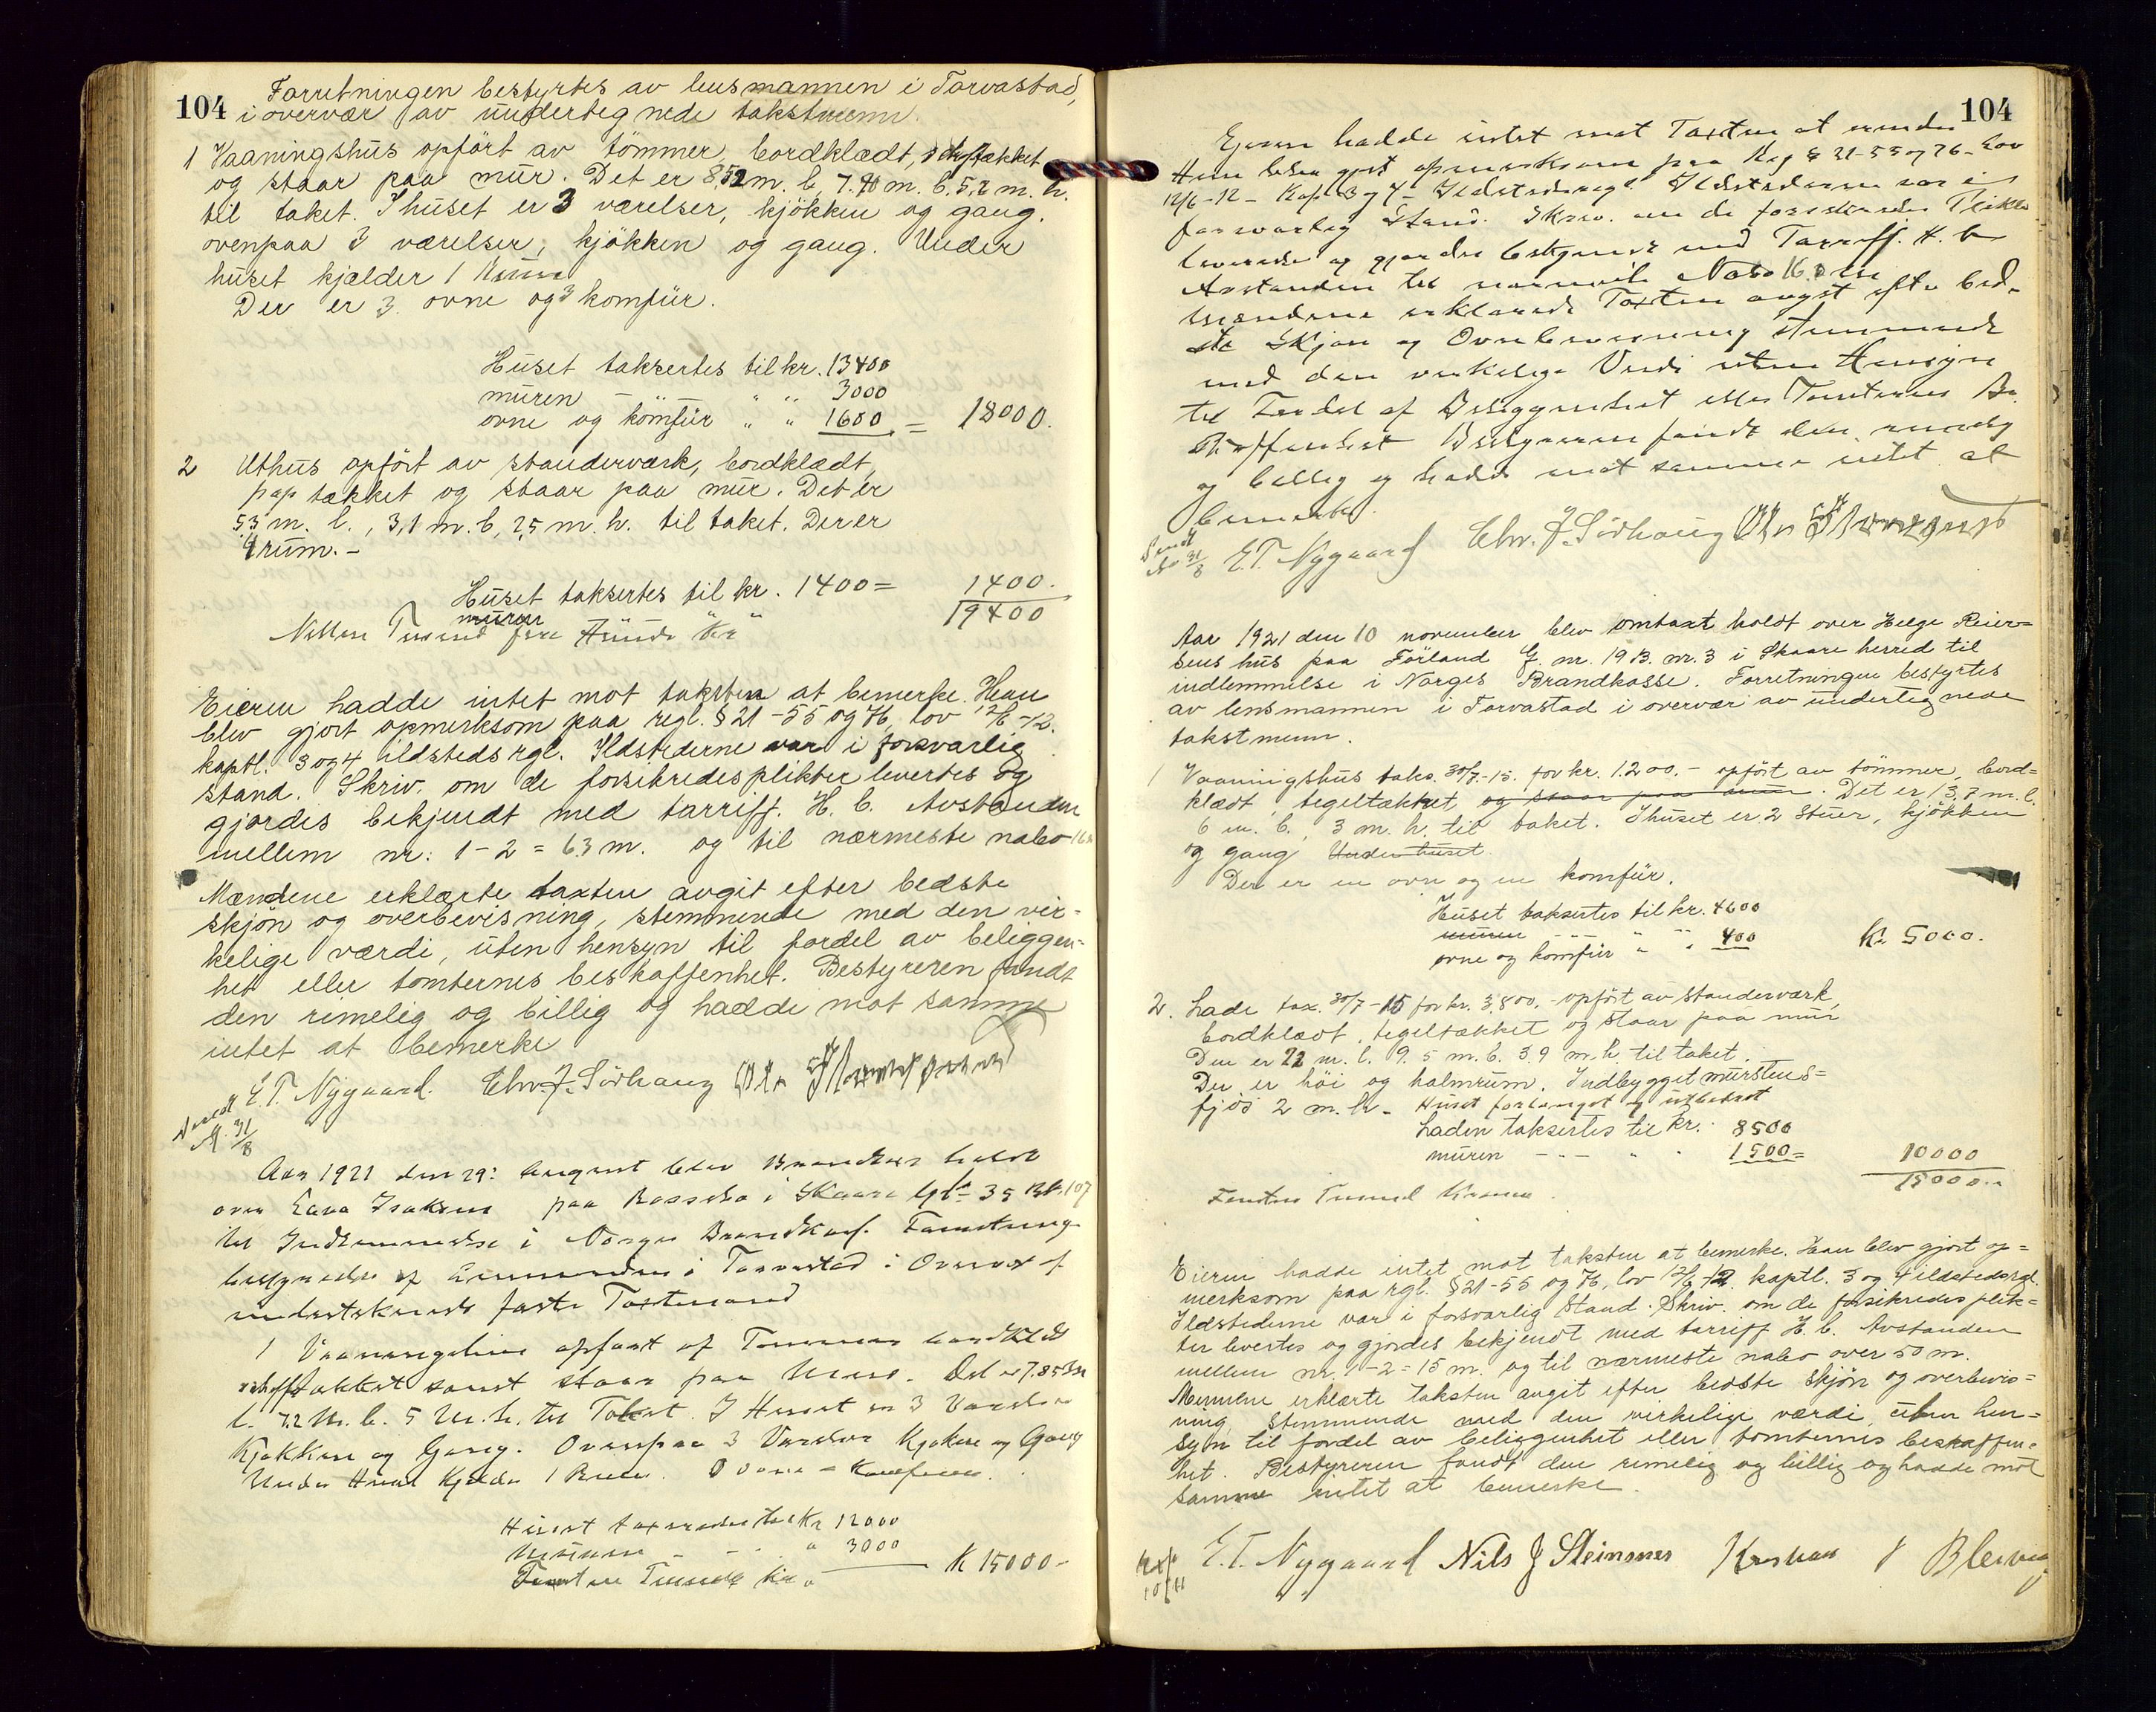 104
Forretningen bestyrtes av lensmannen i Torvastad,
i overvær av undertegnede takstmenn.
1 Vaaningshus opfört av tömmer, bordklædt, skifertækket
og staar paa mur. Det er 8,52 m. l. 7.90 m. b. 5,2 m. h.
til taket. I huset er 3 værelser, kjökken og gang.
ovenpaa 3 værelser, kjökken og gang. Under
huset kjælder 1
Der er 3 ovne og 3 komfür.
Huset taksertes til kr. 13400
muren - - " " 3000
ovne og komfür " " 1600 = 18000.
2 Uthus opfört av standerværk, bordklædt,
pap tækket og staar paa mur. Det er
5,3 m. l., 3,1 m. b, 2,5 m. h. til taket. Der er
rum. -
Huset taksertes til kr. 1400 = 1400.
muren " " 19400
Nitten Tusend fire Hundr Kr
Eieren hadde intet mot taksten at bemerke. Han
blev gjort opmerksom paa regl. § 21 - 55 og 76, lov 12/6-12.
kaptl. 3 og 4 ildsteds rgl. Ildstederne var i forsvarlig
stand. Skriv. om de forsikredes plikter levertes og
gjordes bekjendt med tarriff. H. b. Avstanden
mellem nr. 1-2 = 63 m. og til nærmeste nabo 16
Mændene erklærte taxten avgit efter bedste
skjön og overbevisning, stemmende med den vir=
kelige værdi, uten hensyn til fordel av beliggen=
het eller tomternes beskaffenhet. Bestyreren fandt
den rimelig og billig og hadde mot samme
intet at bemerke
E. T. Nygaard. Chr. J. Sörhaug
31/8
Aar 1921 den 29: august blev holdt
over Lava Isaksens paa i Skaare 35 107
til Indlemmelse i Norges Brandkas. Forretning
af Lensmanden i Torvestad i Overvær af
faste Taxtmænd
1 Vaaningshus opfört af Tömmer bordklædt
samt staar paa Mur. Det er 7.85 m
l. 7.2 M. b. 5 M. h. til Taket. I Huset er 3 Værelser
Kjøkken og Gang. Ovenpaa 3 Værelser Kjøken og Gang
Under Huset Kjelder 1 Rum.
Huset taxeredes til Kr 12000
Muren - - " 3000
K 15000 -
Femten Tusende Kr
104
Eieren hadde intet mot Taxten at erindre
Han blev gjort opmerksom paa Reg § 21-55 og 76 - Lov
12/6-12 - Kap 3 og 4 - Ildstedsregl. Ildstederne var i
forsvarlig Stand. Skriv. om de forsikredes Plikter
leveredes og gjordes bekjendt med Tarriff. H. b
Avstanden til nærmeste Nabo 16.0 m
Mændene erklærede Taxten avgit efter bed-
ste Skjøn og Overbevisning stemmende
med den virkelige Verdi uten Hensyn
til Fordel af Beliggenhet eller Tomternes Be
skaffenhet Bestyreren fandt den rimelig
og billig og hadde mot samme intet at
bemerke.
31/8 E. T. Nygaard Chr. J. Sörhaug
Aar 1921 den 10 november blev omtaxt holdt over Helge Reier=
sens hus paa Förland G. nr. 19 B. nr. 3 i Skaare herred til
indlemmelse i Norges Brandkasse. Forretningen bestyrtes
av lensmannen i Torvastad i overvær av undertegnede
takstmenn.
1 Vaaningshus taks. 30/7-15. for kr. 1.200.- opfört av tömmer, bord=
klædt, tegeltækket og staar paa mur. Det er 13,7 m. l.
6 m. b., 3 m. h. til taket. I huset er 2 stuer, kjökken
og gang Under huset
Der er en ovn og en komfür.
Huset taksertes til kr. 4600
muren - - " "
ovne og komfür " " 400 Kr 5000.
2. Lade tax. 30/7-15 for kr. 3.800.- opfört av standerværk,
bordklædt, tegeltækket og staar paa mur
Den er 22 m. l. 9.5 m. b. 3.9 m. h. til taket.
Der er höi og halmrum. Indbygget murstens=
fjös 2 m. h. - Huset forlænget og utbedret
Laden taksertes til kr. 8500
muren - - - " " 1500 = 10000
15000.-
Femten Tusend Kroner
Eieren hadde intet mot taksten at bemerke. Han blev gjort op=
merksom paa rgl. § 21-55 og 76, lov 12/6-12. kaptl. 3 og 4 ildstedsrgl.
Ildstederne var i forsvarlig stand. Skriv. om de forsikredes plik=
ter levertes og gjordes bekjendt med tarriff H. b. Avstanden
mellem nr. 1-2 = 15 m. og til nærmeste nabo over 50 m.
Mennene erklærte taksten avgit efter bedste skjön og overbevis=
ning, stemmende med den virkelige værdi, uten hen=
syn til fordel av beliggenhet eller tomternes beskaffen=
het. Bestyreren fandt den rimelig og billig og hadde mot
samme intet at bemerke.
E. T. Nygaard Nils J Steinsnes